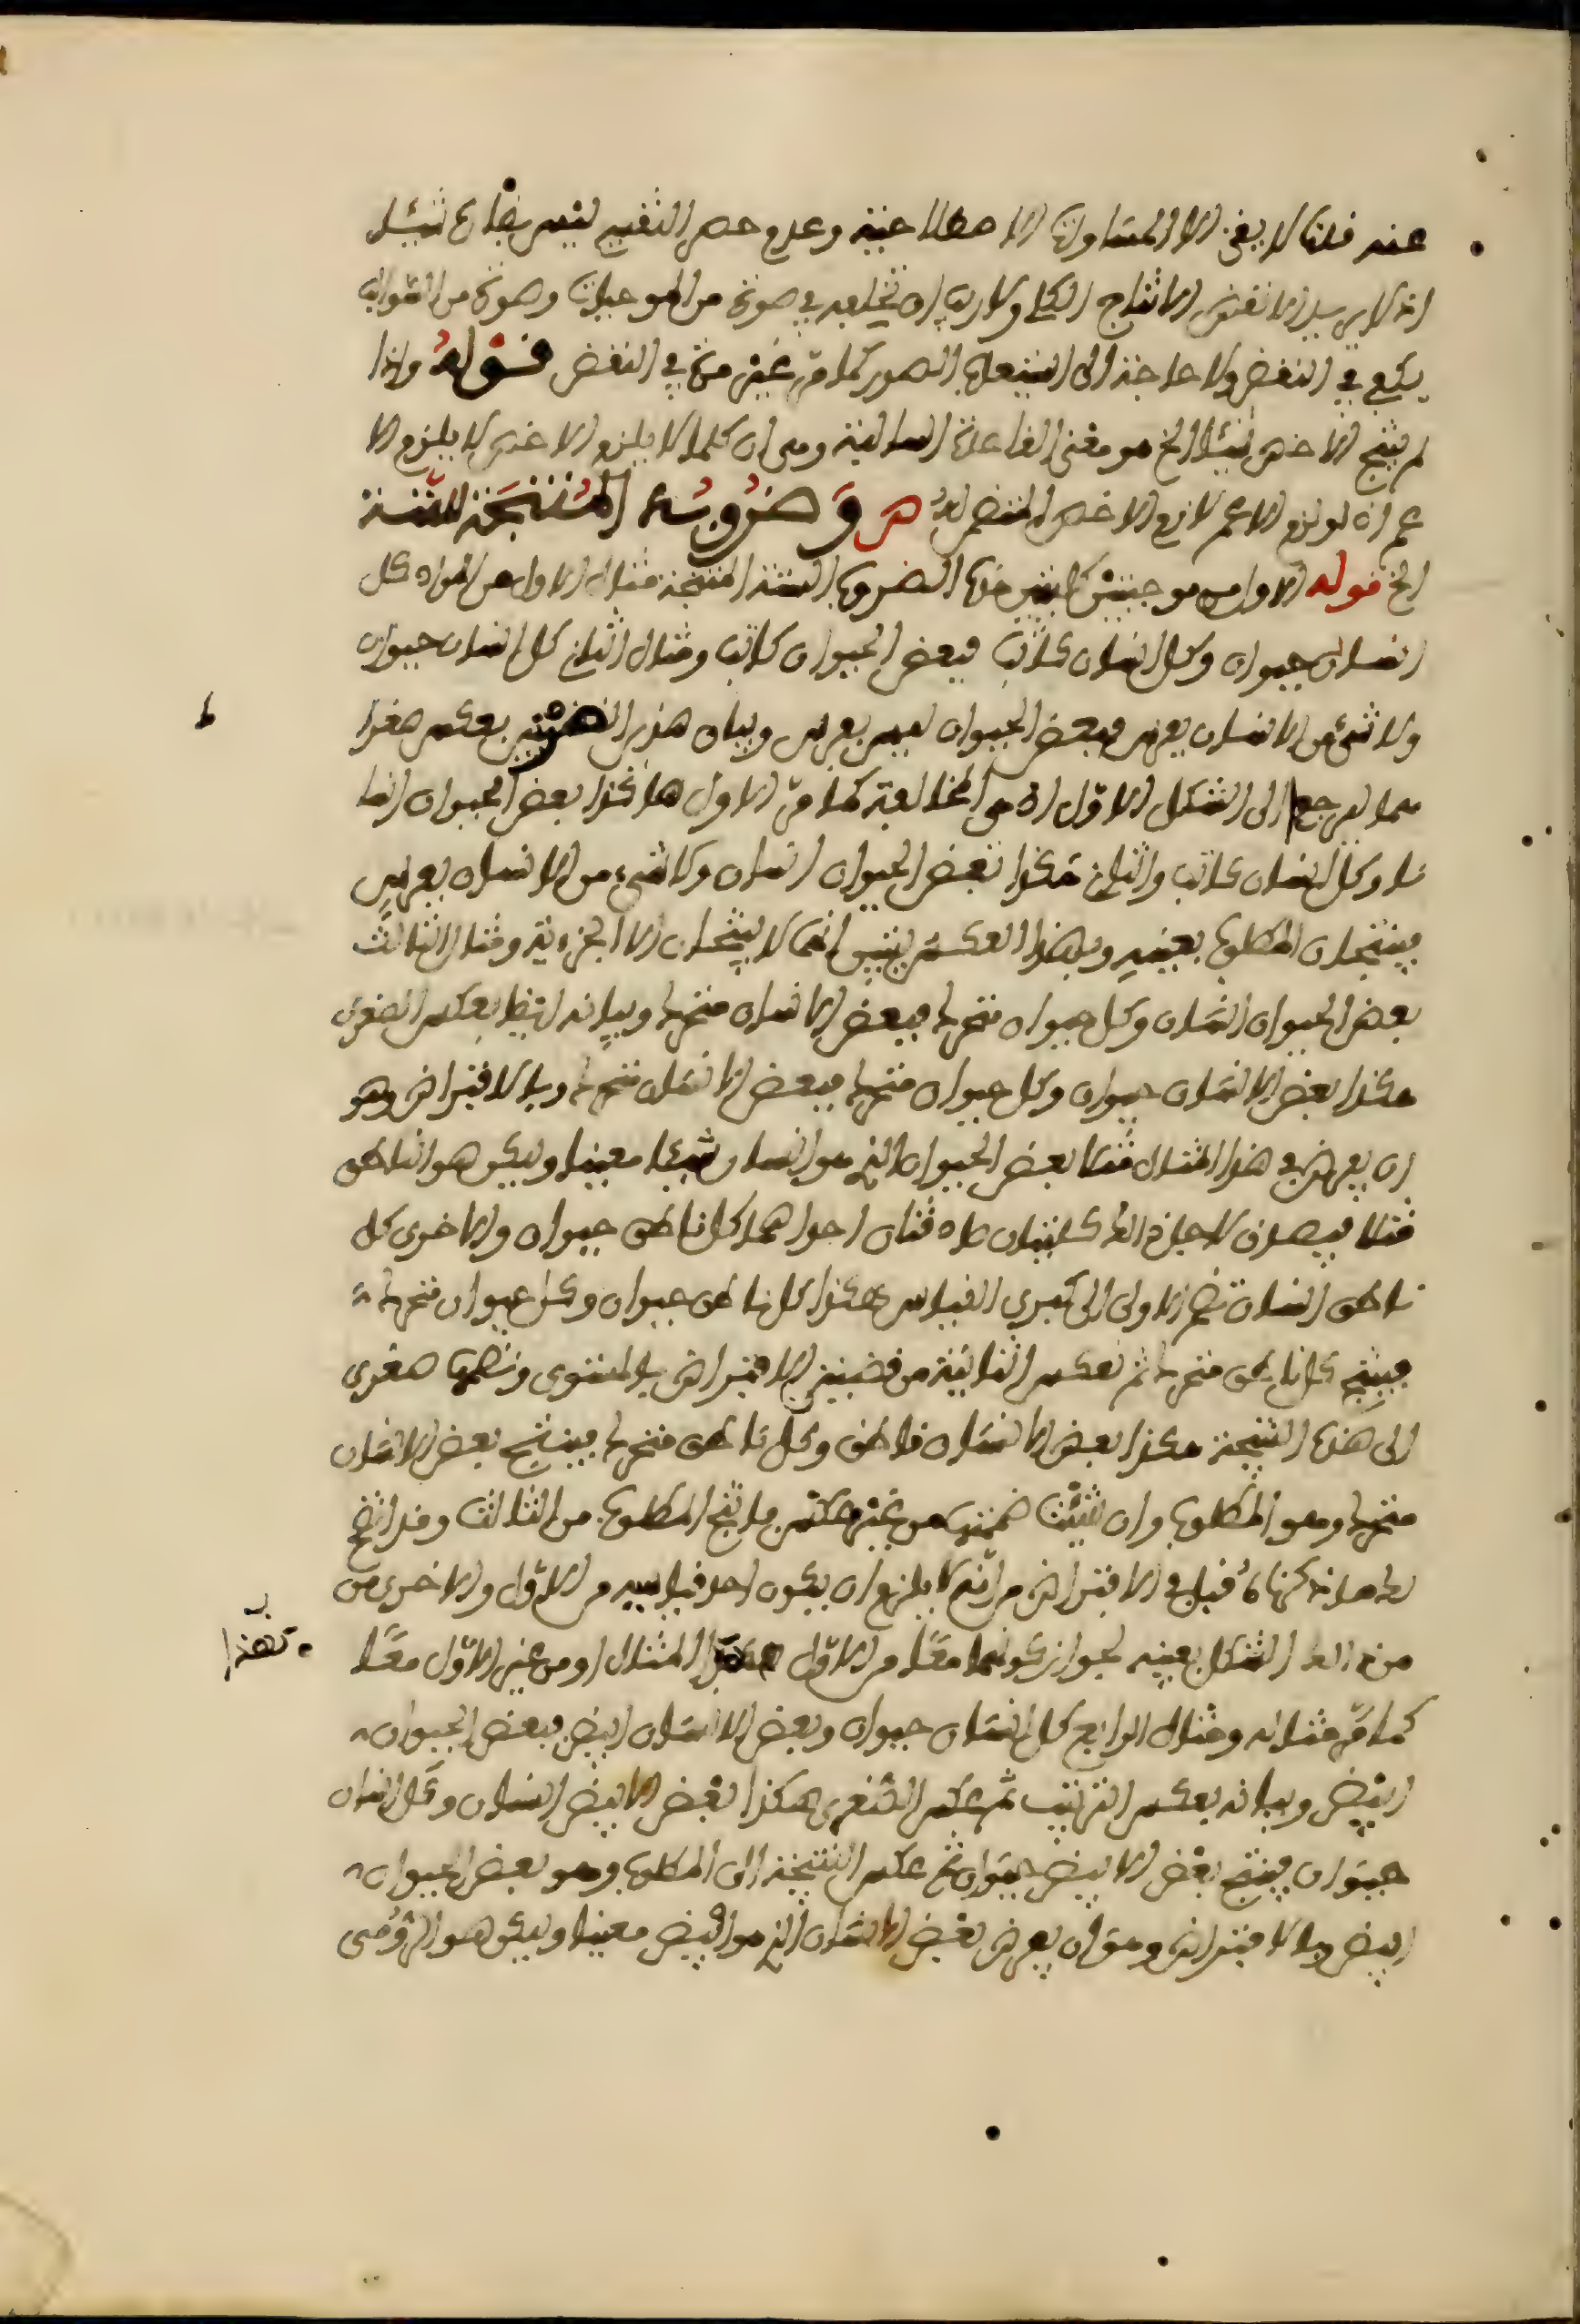 عنه قلنا لا يبقى الا المساواة الاصطلاحية وعدم حصر التقييد ليس بقادح
اذ لا يريد الا نقض الانتاج الكلي ولا ريب ان تخلفه في صورة من الموجبات وصورة من السوالب
يكفي في النقض ولا حاجة الى استيعاب الصور كما مر غير مرة في النقض قوله واذا
لم ينتج الاخص شيئا الخ هو معنى القاعدة السالفة وهي ان كلما لا يلزم الاخص لا يلزم الا
عم اذ لو لزم الاعم لازم الاخص المتضمن له ص وضروبه المنتجة الستة
الخ قوله الاول من موجبتين كليتين هذه الضروب الستة المنتجة مثال الاول من المواد كل
انسان حيوان وكل انسان كاتب فبعض الحيوان كاتب ومثال الثاني كل انسان حيوان
ولا شيء من الانسان بفرس فبعض الحيوان ليس بفرس وبيان هذين الضربين بعكس صغرا
هما ليرجعا الى الشكل الاول اذ هي المخالفة كما مر الاول هكذا بعض الحيوان انسا
ن وكل انسان كاتب والثاني هكذا بعض الحيوان انسان ولا شيء من الانسان بفرس
فينتجان المطلوب بعينه وبهذا العكس يتبين انهما لا ينتجان الا الجزءية ومثال الثالث
بعض الحيوان انسان وكل حيوان متحرك فبعض الانسان متحرك وبيانه ايضا بعكس الصغرى
هكذا بعض الانسان حيوان وكل حيوان متحرك فبعض الانسان متحرك وبالافتراض وهو
ان يفرض في هذا المثال مثلا بعض الحيوان الذي هو انسان شيئا معينا وليكن هو الناطق
مثلا فيصدق لاجل ذلك كليتان صادقتان احداهما كل ناطق حيوان والاخرى كل
ناطق انسان تضم الاولى الى كبرى القياس هكذا كل ناطق حيوان وكل حيوان متحرك
فينتج كل ناطق متحرك ثم تعكس الثانية من قضيتي الافتراض بالمستوي وتضمها صغرى
الى هذه النتيجة هكذا بعض الانسان ناطق وكل ناطق متحرك فينتج بعض الانسان
متحرك وهو المطلوب وان شئت ضممتها من غير عكس فانتج المطلوب من الثالث وقد اتضح
لك ما ذكرناه قبل في الافتراض من انه لا يلزم ان يكون احد قياسيه من الاول والاخرى من
من ذلك الشكل بعينه لجواز كونهما معا من الاول بهذا المثال او من غير الاول معا
كما مر مثاله ومثال الرابع كل انسان حيوان وبعض الانسان ابيض فبعض الحيوان
ابيض وبيانه بعكس الترتيب ثم عكس الصغرى هكذا بعض الابيض انسان وكل انسان
حيوان فينتج بعض الابيض حيوان ثم عكس النتيجة الى المطلوب وهو بعض الحيوان
ابيض وبالافتراض وهو ان يفرض بعض الانسان الذي هو ابيض معينا وليكن هو الرومي
ط
بهذا